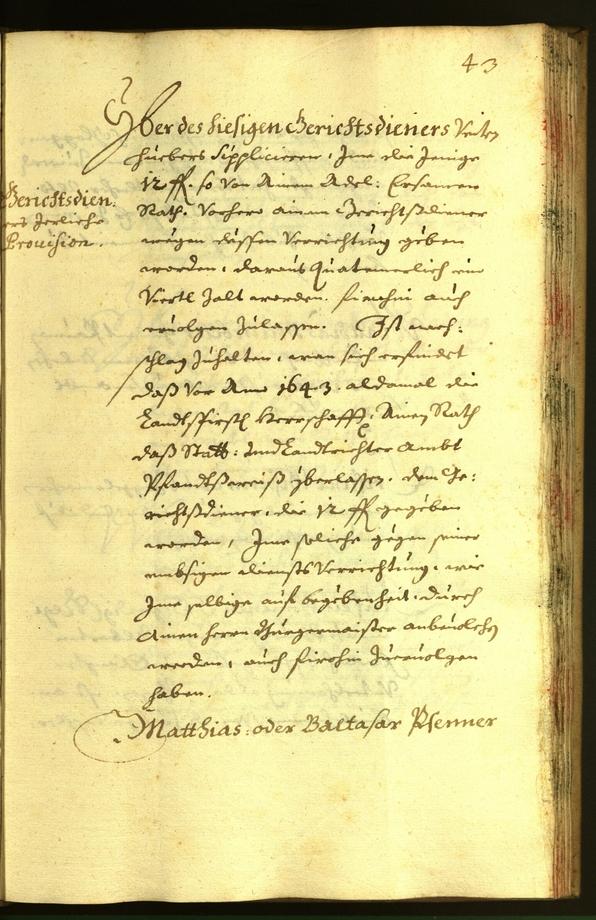 43
Yber des hiesigen Gerichtsdieners Veiten
Huebers Suppliciern, Ime die Jenige
12 ff. so von Ainem Adel: Ersamen
Rath. Vorhero ainem Gerichtsdiener
wegen dessen Verrichtung geben
worden, daraus Quatemerlich ein
Viertl Zalt worden. firohin auch
ervolgen Zulassen. Ist nach:
schlag Zuhalten, wan sich erfindet
daß Vor Anno 1643. aldamal die
Landtsfirstl Herrschafft, Ainem Rath
daß Statt: und Landtrichter Ambt
Pfandtsweiß yberlassen. dem Ge:
richtsdiener, die 12 ff gegeben
worden, Ime soliche gegen seiner
embsigen diensts Verrichtung, wie
Ime selbige auf begebenheit, durch
Ainen Herrn Burgermaister anbevolchen
werden, auch firohin Zuervolgen
haben.
Matthias: oder Baltasar Psenner
Gerichtsdien:
ers Jerliche
Provision.